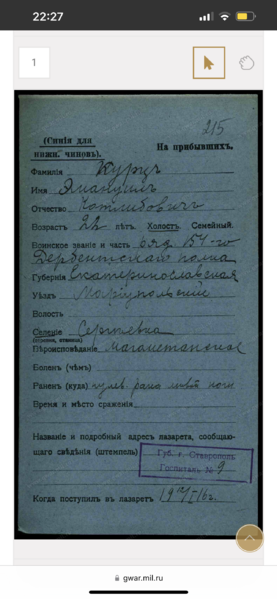 22:27
1
215
(Синія для
нижн. чиновъ).
На прибывшихъ.
Фамилія Курцъ
Имя
Отчество Готлибовичъ
Возрастъ 22 лѣтъ. Холостъ. Семейный.
Воинское званіе и часть ряд 154-го
Дербентскаго полка
Губернія Екатеринославская
Уѣздъ Маріупольскій
Волость
Селеніе Сергѣевка
Вѣроисповѣданіе Магометанское
Боленъ (чѣмъ)
Раненъ (куда) пулев. рана лѣвой ноги
Время и мѣсто сраженія
Названіе и подробный адресъ лазарета, сообщаю-
щаго свѣдѣнія (штемпель)
Губ. г. Ставрополь
Госпиталь № 9
Когда поступилъ въ лазаретъ 19 I 16 г.
gwar.mil.ru